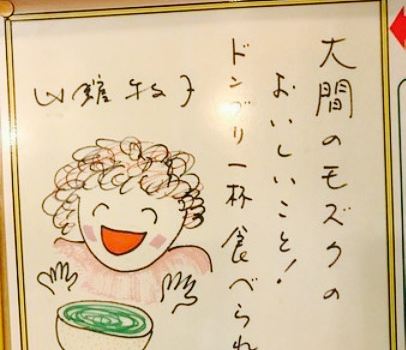 大間のモズクの
おいしいこと!
ドンブリ一杯食べられ
山舘牧子